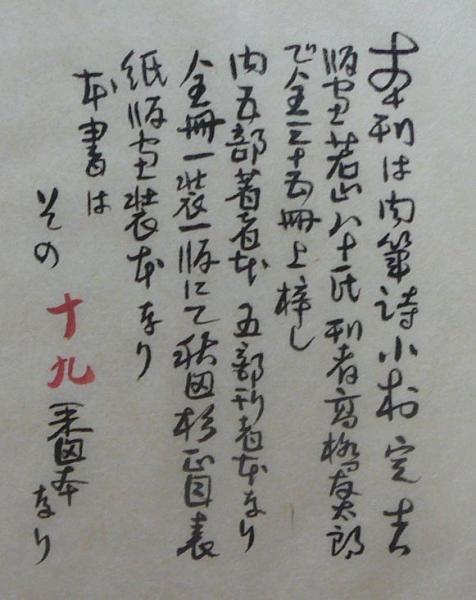 本刊は肉筆詩小村定吉
版画若山八十氏刊者高橋友太郎
で全三十五冊上梓し
内五部著者本五部刊者本なり
全冊一装一版にて秋田杉正目表
紙版画装本なり
本書は
その十九番本なり